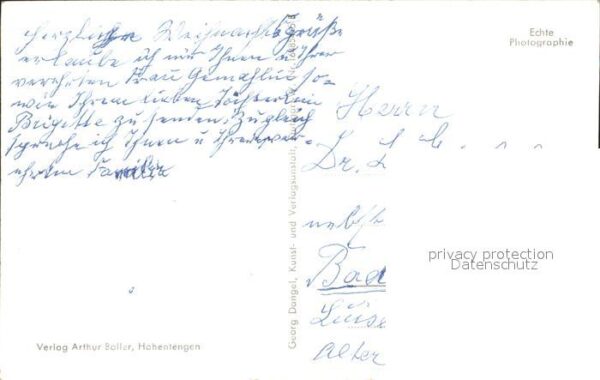 Herzliche Weihnachtsgrüße
erlaube ich mir Ihnen u Ihrer
verehrten Frau Gemahlin so-
wie Ihrem lieben Töchterlein
Brigitte zu senden. Zugleich
spreche ich Ihnen u Ihrer wer-
Familie
Echte
Photographie
Herrn
Dr. L
nebst
Bad
Luise
alter
privacy protection
Datenschutz
Georg Dangel, Kunst- und Verlagsanstalt
Verlag Arthur Boller, Hohentengen